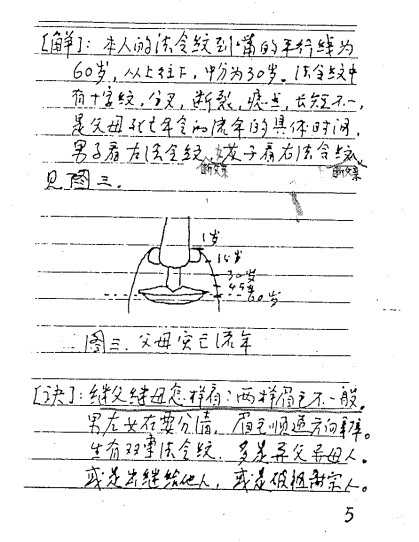 [解]：本人的法令纹到嘴的平行线为
60岁，从上往下，中分为30岁。法令纹中
有十字纹，分叉，断裂，痣点，长短不一，
是父母死亡年令的流年的具体时间，
男子看左法令纹，女子看右法令纹
断父亲 断父亲
见图三.
1岁
15岁
30岁
45岁
60岁
图三. 父母实亡流年
[诀]：继父继母怎样看：两样眉毛不一般。
男左女右要分清，眉毛顺逆方向事。
生有双索法令纹，多是异父异母人。
或是出继给他人，或是破祖离宗人。
5